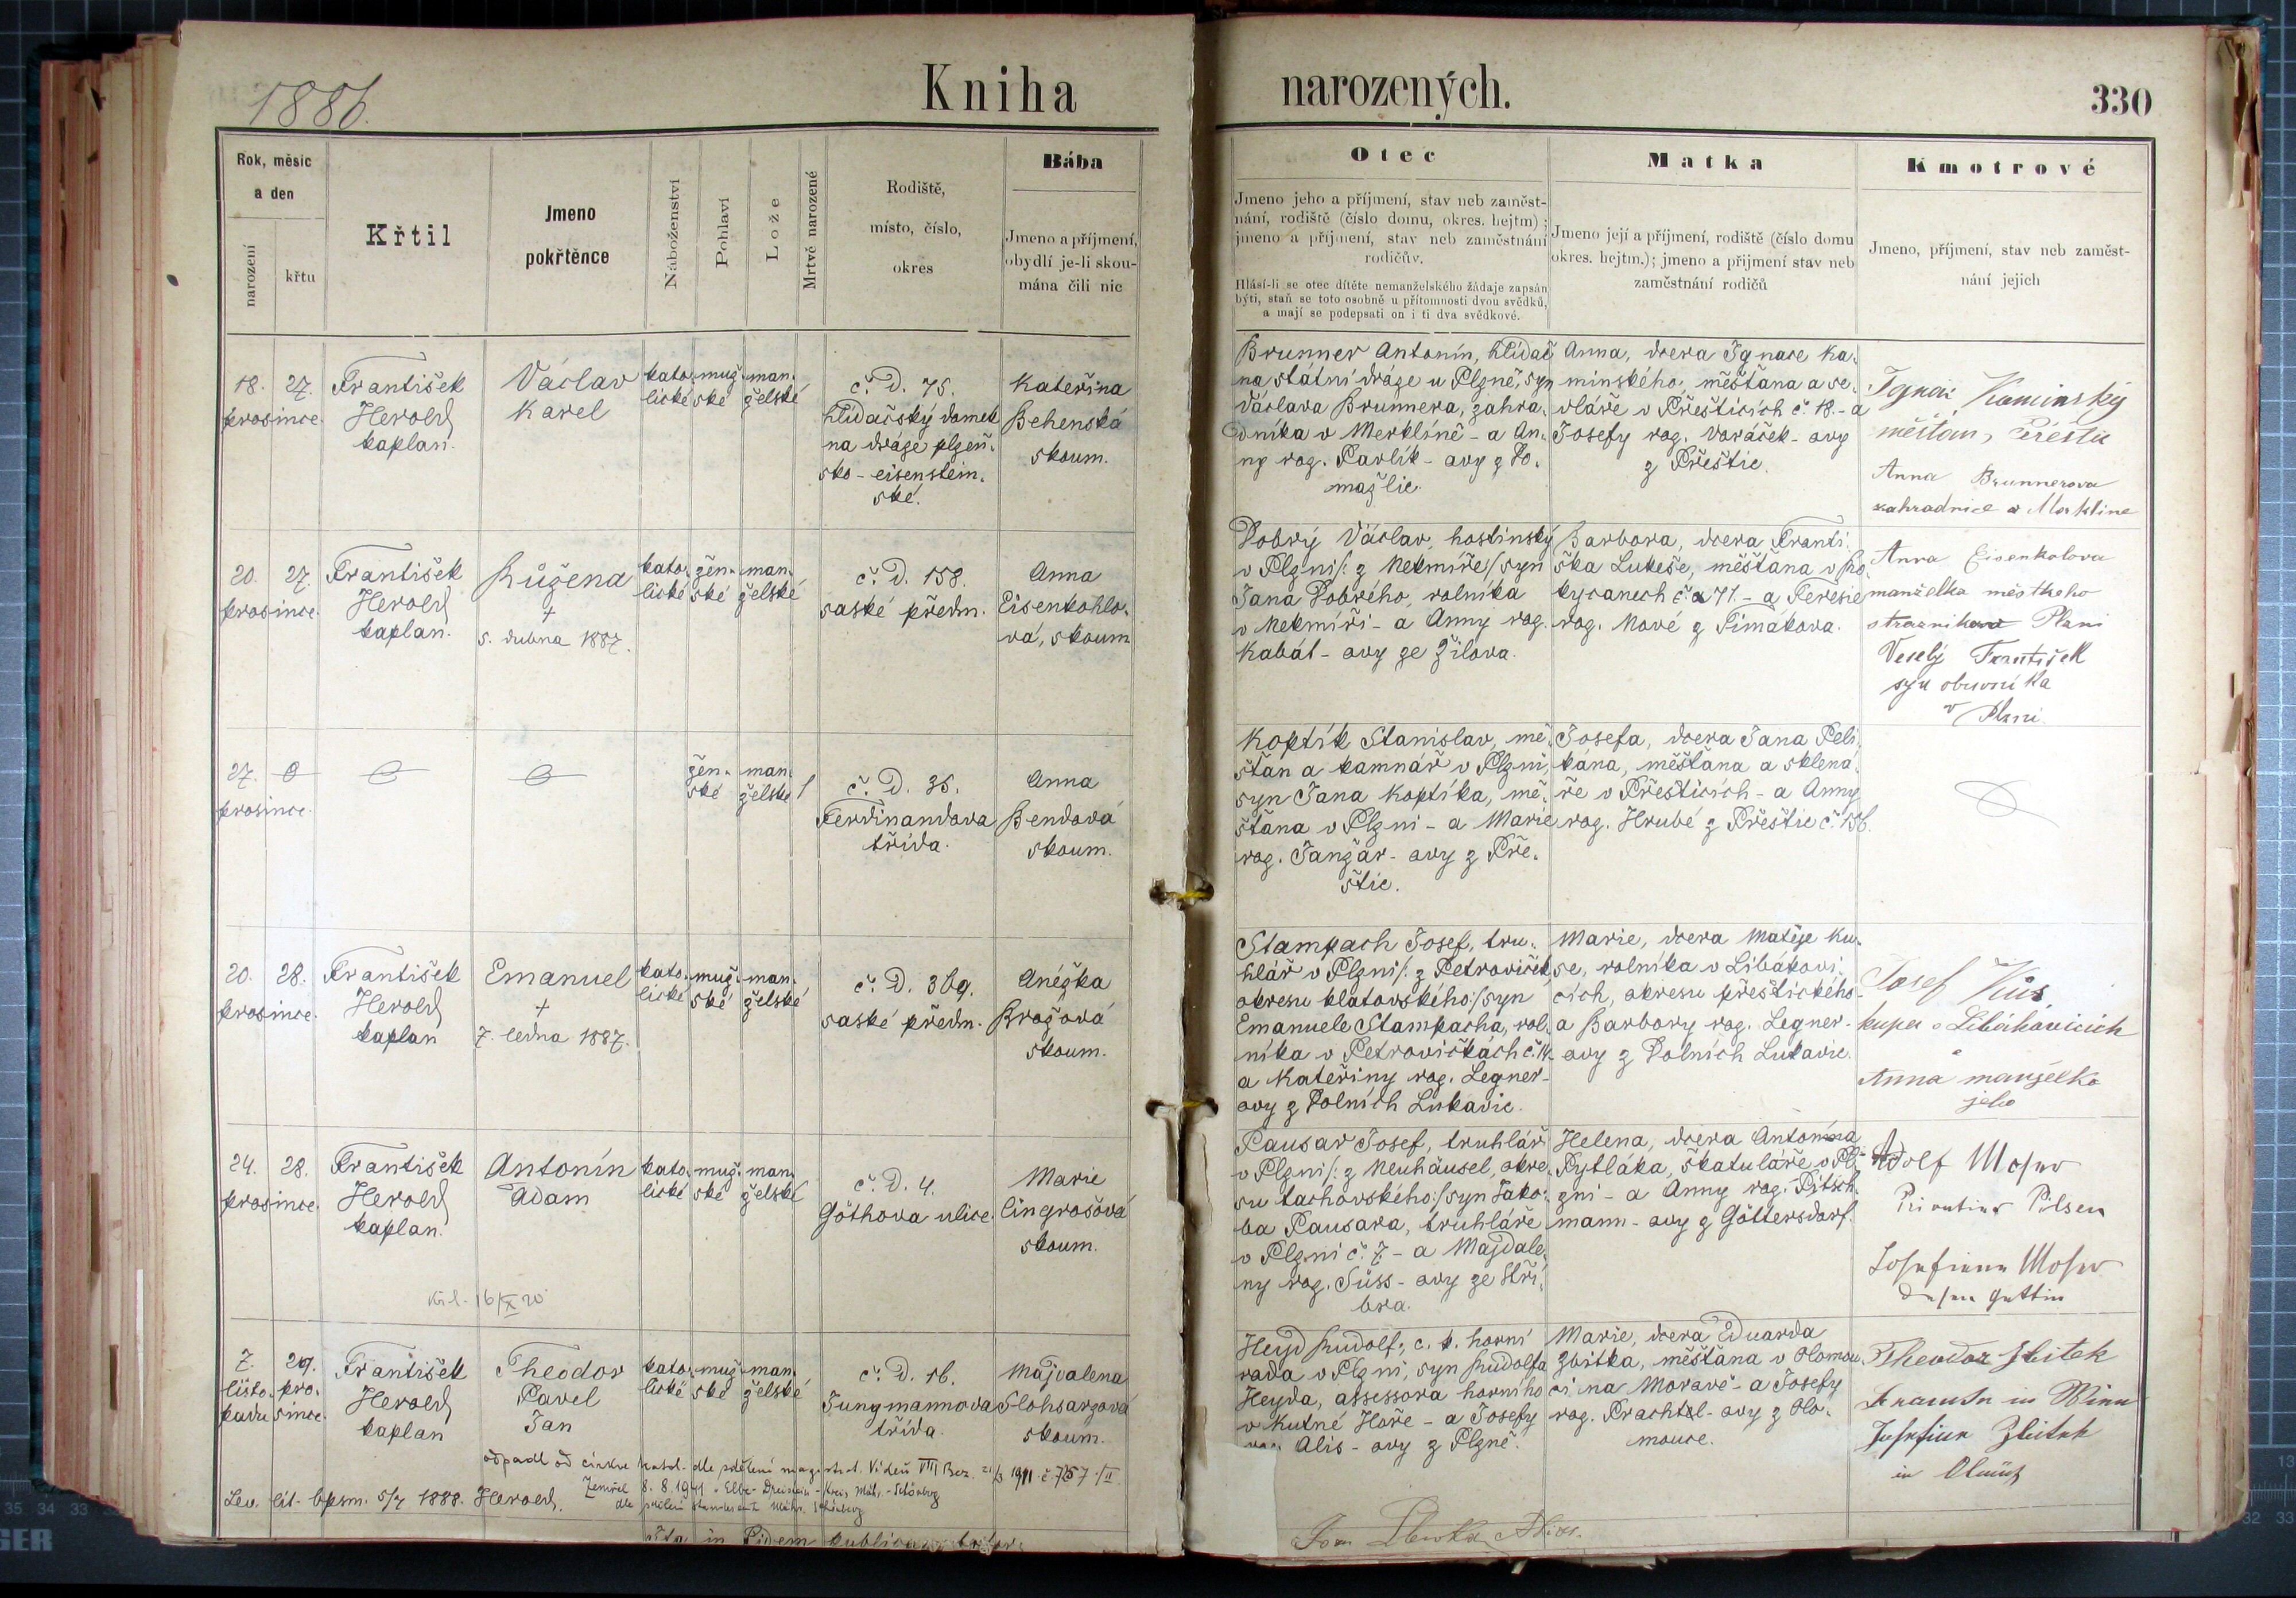 1886.
Kniha
narozených.
330
Rok, měsíc
a den
narození
křtu
Křtil
Jmeno
pokřtěnce
Náboženství
Pohlaví
Lože
Mrtvé narozené
Rodiště,
místo, číslo,
okres
Bába
Jmeno a příjmení,
obydlí je-li skou-
mána čili nic
Otec
Jmeno jeho a příjmení, stav neb zaměst-
nání, rodiště (číslo domu, okres. hejtm);
jmeno a příjmení, stav neb zaměstnání
rodičův.
Hlásí-li se otec dítěte nemanželského žádaje zapsán
býti, staň se toto osobně u přítomnosti dvou svědků,
a mají se podepsati on i ti dva svědkové.
Matka
Jmeno její a příjmení, rodiště (číslo domu
okres. hejtm.); jmeno a přijmení stav neb
zaměstnání rodičů
Kmotrové
Jmeno, příjmení, stav neb zaměst-
nání jejich
18. 27.
prosince.
František
Herold
kaplan.
Václav
Karel
kato-
lické
muž-
ské
man-
želské
č. D. 75.
hlídačský domek
na dráze plzeň-
sko - eisenstein-
ské.
Kateřina
Behenská
skoum.
Brunner Antonín, hlídač
na státní dráze u Plzně, syn
Václava Brunnera, zahra-
dníka v Merklíně - a An-
ny roz. Pavlík - ovy z Do-
mažlic.
Anna, dcera Ignace Ka-
minského, měšťana a se-
dláře v Přešticích č. 18. - a
Josefy roz. Voráček - ovy
z Přeštic.
Ignác Kaminský
měštan, Přeštic
Anna Brunnerova
zahradnice a Merkline
20. 27.
prosince.
František
Herold
kaplan.
Růžena
+
5. dubna 1887.
kato-
lické
žen-
ské
man-
želské
č. D. 158.
saské předm.
Anna
Eisenkohlo-
vá, skoum
Dobrý Václav, hostinský
v Plzni /: z Nekmíře / syn
Jana Dobrého, rolníka
v Nekmíři - a Anny roz.
Kabát - ovy ze Žilova.
Barbora, dcera Franti-
ška Lukeše, měšťana v Ro-
kycanech č. 71. - a Terezie
roz. Nové z Timákova.
Anna Eisenkolova
manželka městkeho
straznika Plzni
Veselý František
syn obuvníka
v Plzni.
27.
prosince.
žen-
ské
man-
želské
1
č. D. 35.
Ferdinandova
třída.
Anna
Bendová
skoum.
Koptík Stanislav, mě-
šťan a kamnář v Plzni,
syn Jana Koptíka, mě-
šťana v Plzni - a Marie
roz. Janžar - ovy z Pře-
štic.
Josefa, dcera Jana Peli-
kána, měšťana a sklená-
ře v Přešticích - a Anny
roz. Hrubé z Přeštic č. 156.
20. 28.
prosince.
František
Herold
kaplan
Emanuel
+
7. ledna 1887.
kato-
lické
muž-
ské
man-
želské
č. D. 369.
saské předm.
Anéžka
Brožová
skoum.
Stampach Josef, tru-
hlář v Plzni /: z Petroviček,
okresu klatovského :/ syn
Emanuele Stampacha, rol-
níka v Petrovičkách č. 14.
a Kateřiny roz. Legner-
ovy z Dolních Lukavic.
Marie, dcera Matěje Ku-
se, rolníka v Libákovi-
cích, okresu přeštického -
a Barbory roz. Legner-
ovy z Dolních Lukavic.
Josef Kůs
kupec v Libákovicích
a
Anna manželka
jeho
24. 28.
prosince.
František
Herold
kaplan.
Antonín
Adam
kato-
lické
muž-
ské
man-
želské
č. D. 4.
Göthova ulice.
Marie
Cingrošová
skoum.
Pausar Josef, truhlář
v Plzni /: z Neuhäusel, okre-
su tachovského :/ syn Jako-
ba Pausara, truhláře
v Plzni č. 7. - a Majdale-
ny roz. Süss - ovy ze Stří-
bra.
Helena, dcera Antonína
Pytláka, škatuláře v Pl-
zni - a Anny roz. Pitsch-
mann - ovy z Göttersdorf.
Adolf Moser
Privatier Pilsen
Josefine Moser
dessen Gattin
16/X 20
7. 29.
listo- pro-
padu since.
František
Herold
kaplan
Theodor
Pavel
Jan
kato-
lické
muž-
ské
man-
želské
č. D. 16.
Jungmannova
třída.
Majdalena
Slohsarzová
skoum.
Heyd Rudolf, c. k. horní
rada v Plzni, syn Rudolfa
Heyda, assessora horního
v Kutné Hoře - a Josefy
roz. Alis - ovy z Plzně.
Marie, dcera Eduarda
Zbitka, měšťana v Olomou-
ci na Moravě - a Josefy
roz. Prachtl - ovy z Olo-
mouce.
Theodor Zbitek
Beamter in Wien
Josefine Zbitek
in Olmütz
odpadl od církve katol. dle sdělení magistrat. Vídeň VIII Bez. 1911 č. 757/II
Lev. lit. bpsm. 5/7 1888. Herold.
Zemřel 8. 8. 1941 Elbe-Dreistein - Kreis Mähr.-Schönberg
dle sdělení standesamt Mähr. Schönberg
in Fidem publicam